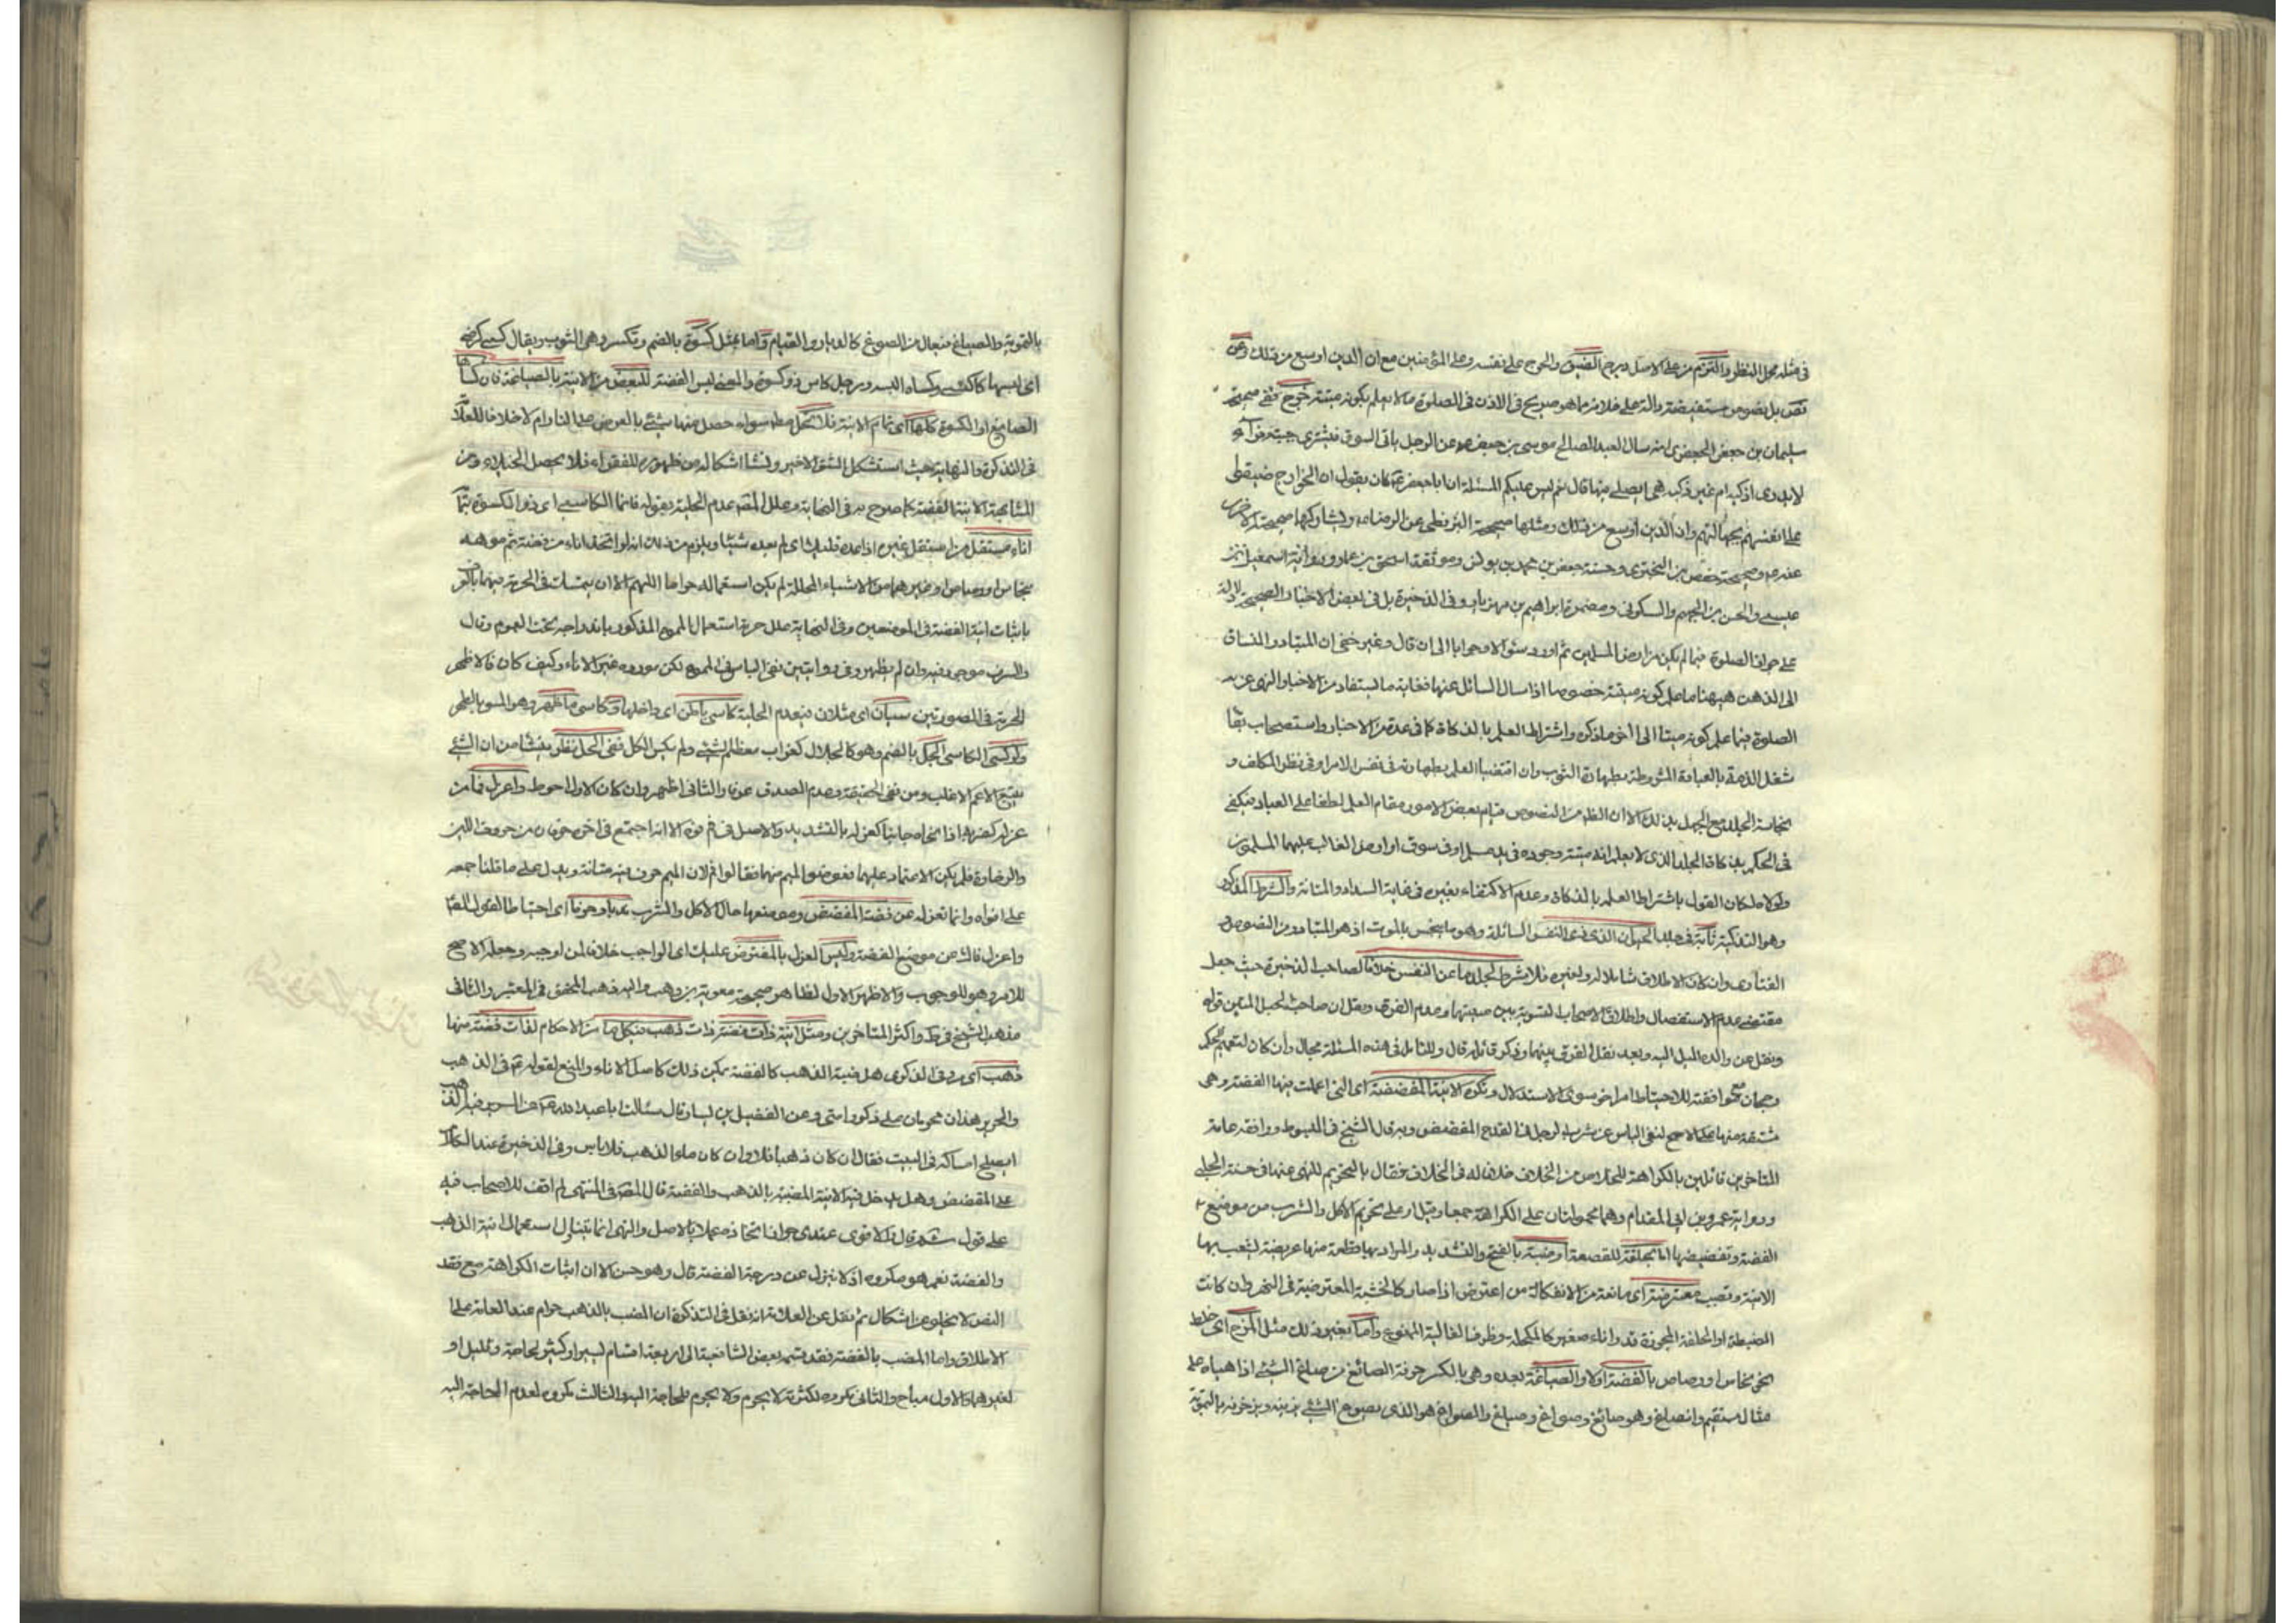 في مثله محل النظر والتزم من على الاصل درج الضيق والحرج على نفسه وعلى المؤمنين مع ان الدين اوسع من ذلك وعن
نص بل نصوص مستفيضة دالة على خلافه مما هو صريح في الاذن في الصلوة ما لا يعلم بكونه ميتة خرج ففي صحيحة
سليمان بن جعفر الجعفري انه سال العبد الصالح موسى بن جعفر عن الرجل ياتي السوق فيشتري جبة فراء
لا يدري اذكية ام غير ذكية هي ايصلي فيها قال نعم ليس عليكم المسئلة ان ابا جعفر ع كان يقول ان الخوارج ضيقوا
على انفسهم بجهالتهم وان الدين اوسع من ذلك ومثلها صحيحة البزنطي عن الرضا ويشاركها صحيحته الاخرى
عنه وصحيحة حفص بن البختري وحسنة جعفر بن محمد بن يونس وموثقة اسحق بن عمار ورواية اسمعيل بن
عيسى والحسن بن الجهم والسكوني ومضمرة ابراهيم بن مهزيار وفي الذخيرة بل في بعض الاخبار الصحيحة دلالة
على جواز الصلوة فيما لم يكن من ارض المسلمين ثم اورد سئوالا وجوابا الى ان قال وغير خفي ان المتبادر المنساق
الى الذهن ههنا ما علم كونه ميتة خصوصا اذا سال السائل عنها فغاية ما يستفاد من الاخبار النهي عن
الصلوة فيما علم كونه ميتا الى اخر ما ذكره واشتراط العلم بالذكاة كما في عدة من الاخبار واستصحاب بقا
شغل الذمة بالعبادة المشروطة بطهارة الثوب وان اقتضيا العلم بطهارته في نفس الامر او في نظر المكلف و
نجاسة الجلد مع الجهل بذلك الا ان الظ من النصوص قيام بعض الامور مقام العلم لطفا على العباد فيكفي
في الحكم بذكاة الجلد الذي لا يعلم انه ميتة وجوده في يد مسلم او في سوق او ارض الغالب عليهما المسلمون
ولولاه لكان القول باشتراط العلم بالذكاة وعدم الاكتفاء بغيره في غاية السداد والمتانة والشرط المذكور
وهو التذكية ثابتة في جلد الحيوان الذي ذي النفس السائلة وهو ما ينجس بالموت اذ هو المتبادر من النصوص و
الفتاوى وان كان الاطلاق شاملا له ولغيره فلا يشرط لجلد ما عن النفس خلافا لصاحب الذخيرة حيث جعل
مقتضى عدم الاستفصال واطلاق الاصحاب لتسوية بين ميتتها وعدم الفرق ونقل ان صاحب الحبل المتين قواه
ونقل عن والده الميل اليه وبعد نقل الفرق بينهما وذكر قائله قال وللتامل في هذه المسئلة مجال وان كان لتعميم الحكم
رجحان موافقة للاحتياط امر اخر سوى الاستدلال وتكره الانية المفضضة اي التي اعملت فيها الفضة وهي
مشتقة منها على الاصح لنفي الباس عن شرب الرجل في القدح المفضض وبه قال الشيخ في المبسوط ووافقه عامة
المتاخرين قائلين بالكراهة للتخلص من الخلاف خلافا له في الخلاف فقال بالتحريم للنهي عنها في حسنة الحلبي
ورواية عمرو بن ابي المقدام وهما محمولتان على الكراهة جمعا وقيل او على تحريم الاكل والشرب من موضع
الفضة وتفضيضها اما بحلقة للقصعة او ضبة بالفتح والتشديد والمراد بها قطعة منها عريضة لتشعب بها
الانية وتضب معترضة اي مانعة من الانفكاك من اعترض اذا صار كالخشبة المعترضة في النهر وان كانت
الضبطة او الحلقة المجوزة قدر اناء صغير كالمكحلة وظرف الغالية الممنوع واما بغير ذلك مثل المزج اي خلط
نحو نحاس او رصاص بالفضة اولا والصياغة بعده وهي بالكسر حرفة الصائغ من صاغ الشئ اذا هيأه على
مثال مستقيم وانصاغ وهو صائغ وصواغ وصياغ والصواغ هو الذي يصوغ الشئ يزينه ويزخرفه بالتموية
بالتموية والصياغ فيعال من الصوغ كالديار والقيام واما بمثل كسوة بالضم وتكسر وهي الثوب ويقال كسي كرضي
اي لبسها كاكتسى وكساه البسه ورجل كاس ذو كسوة والمعنى ليس الفضة للبعض من الانية بالصياغة فان كساها
الصائغ او الكسوة كلها اي تمام الانية فلا تحل مط سواء حصل منها شئ بالعرض على النار ام لا خلافا للعلا
في التذكرة والنهاية حيث استشكل الشق الاخير ونشأ اشكاله من ظهوره للفقراء فلا يحصل الخيلاء ومن
المشابهة لانية الفضة كما صرح به في النهاية وعلل المص عدم الحلية بقوله فانما الكاسي اي ذو الكسوة تماما
اناء مستقل من استقل غيره اذا عده قليلا اي لم يعده شيئا ويلزم من ذلك انه لو اتخذ اناء من فضة ثم موهه
بنحاس او رصاص او غيرهما من الاشياء المحللة لم يكن استعماله حراما اللهم الا ان يتمسك في الحرمة فيهما
باثبات انية الفضة في الموضعين وفي النهاية علل حرمة استعمال المموه المذكور باندراجه تحت العموم وقال
والسرف موجود فيه وان لم يظهر وفي روايتين نفي الباس في المموه لكن مورده غير الاناء وكيف كان فالاظهر
الحرمة في الصورتين سيان اي مثلان في عدم الحلية كاسي باطن اي داخلها وكاسي ما ظهر وهو المسو بالظهر
ولو كسى الكاسي الجل بالضم وهو كالجلال كغراب معظم الشئ ولم يكس الكل ففي الحل نظر ينشأ من ان الشئ
يتبع الاعم الاغلب ومن نفي الحقيقة وعدم الصدق عرفا والثاني اظهر وان كان الاول احوط واعزل فما من
عزله كضربه اذا نحاه جانبا كعزله بالتشديد والاصل في فم فوه الا انه اجتمع في اخره حرفان من حروف اللين
والرخاوة فلم يكن الاعتماد عليهما فعوضوا الميم منهما فقالوا فم لان الميم حرف فيه متانة ويدل على ما قلنا جمعه
على افواه وانما تعزله عن فضة المفضض وموضعها حال الاكل والشرب ندبا وجوبا اي احتياطا لقوله
واعزل فاك عن موضع الفضة وليس العزل بالمفترض عليك اي الواجب خلافا لمن اوجبه وجعله الاصح
للامر وهو للوجوب والاظهر الاول لظاهر صحيحة معوية بن وهب واليه ذهب المحقق في المعتبر والثاني
مذهب الشيخ في ط واكثر المتاخرين ومثل انية ذات فضة ذات ذهب فيكل ما من الاحكام لذات فضة منها
ذهب اي يرد في الذكرى هل ضبة الذهب كالفضة يمكن ذلك كاصل الاناء والمنع لقوله ع في الذهب
والحرير هذان محرمان على ذكور امتي وعن الفضيل بن يسار قال سئالت ابا عبد الله ع عن السرير فيه الذهب
ايصلح امساكه في البيت فقال ان كان ذهبا فلا وان كان ماء الذهب فلا باس وفي الذخيرة عند الكلام
على المفضض وهل يدخل فيه الانية المضببة بالذهب والفضة قال المص في المنتهى لم اقف للاصحاب فيه
على قول ثم قال والاقوى عندي جواز اتخاذه عملا بالاصل والنهي انما يتناول استعمال انية الذهب
والفضة نعم هو مكروه اذ لا ينزل عن درجة الفضة قال وهو حسن الا ان اثبات الكراهة مع فقد
النص لا يخلو عن اشكال ثم نقل عن العلامة انه نقل في التذكرة ان المضبب بالذهب حرام عند العامة على
الاطلاق واما المضبب بالفضة فقد قسمه بعض الشافعية الى اربعة اقسام يسير او كثير لحاجة وقليل او
لغيرهما والاول مباح والثاني مكروه لكثرته لا يحرم ولا يحرم للحاجة اليه والثالث مكروه لعدم الحاجة اليه